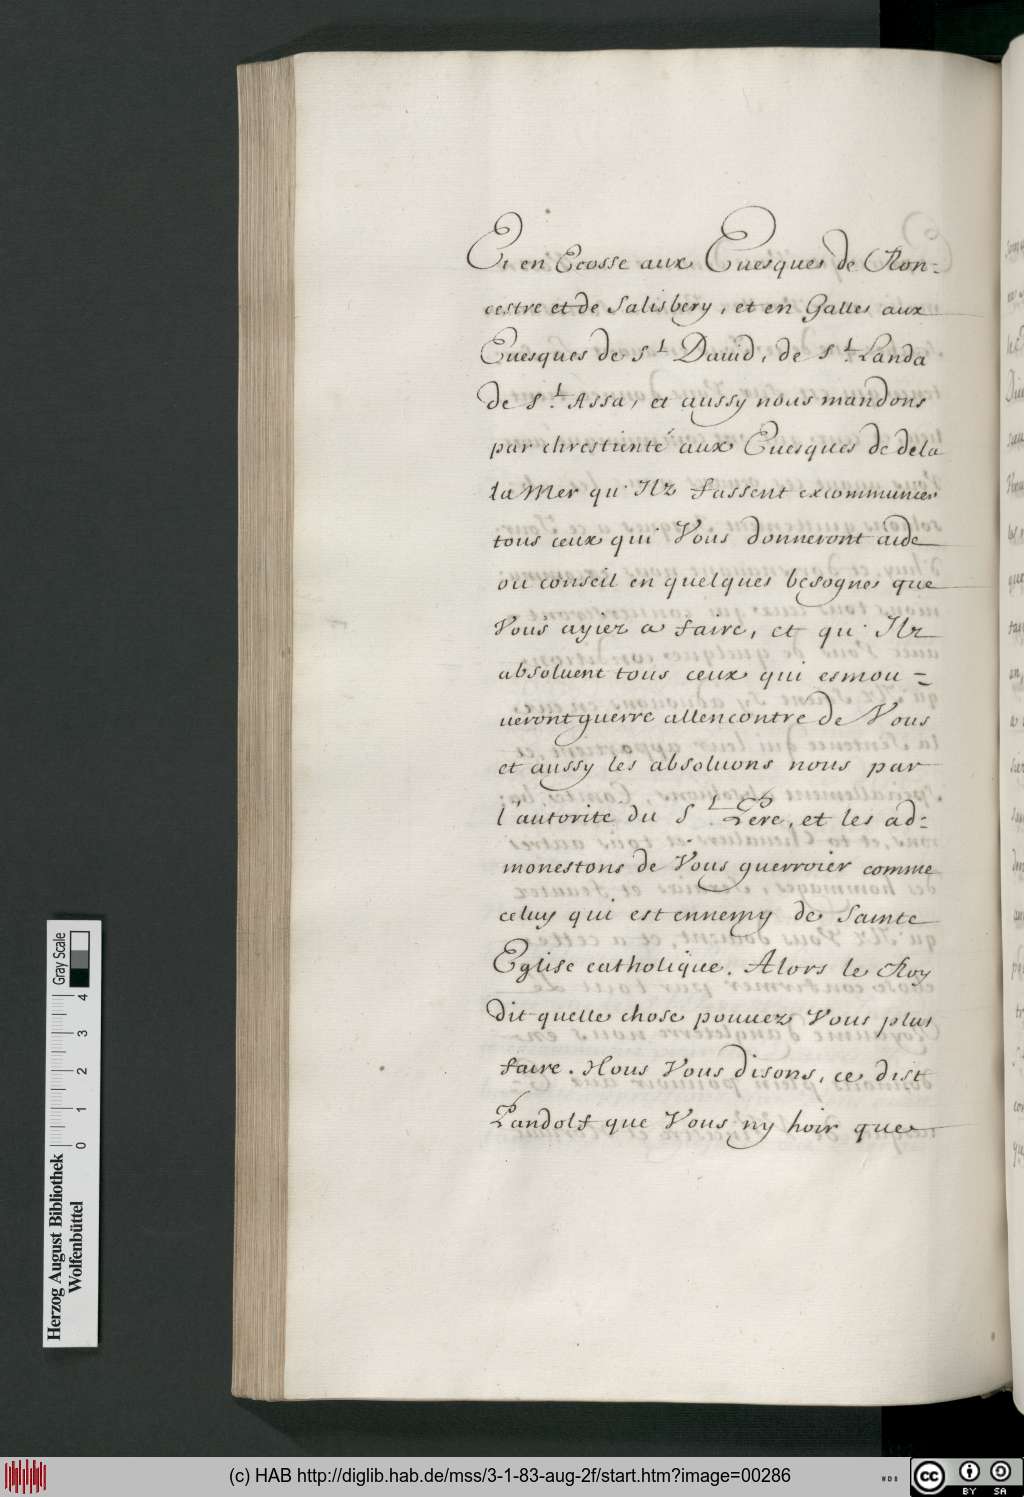 Et en Ecosse aux Euesques de Ron=
cestre et de Salisbery, et en Galles aux
Euesques de St Dauid, de St. Landa
de St. Assa, et aussy nous mandons
par chrestiinté aux Euesques de dela
la Mer qu'Ilz fassent excommunier
tous ceux qui Vous donneront aide
ou conseil en quelques besognes que
Vous ayiez a faire, et qu'Ilz
absoluent tous ceux qui esmou=
ueront guerre allencontre de Vous
et aussy les absoluons nous par
l'autorite du St. Pere, et les ad=
monestons de Vous guerroier comme
celuy qui est ennemy de Sainte
Eglise catholique. Alors le Roy
dit quelle chose pouuez Vous plus
faire. Nous Vous disons, ce dist
Pandolf que Vous ny hoir que
Herzog August Bibliothek
Wolfenbüttel
0 1 2 3 4
Gray Scale
(c) HAB http://diglib.hab.de/mss/3-1-83-aug-2f/start.htm?image=00286
WDB
cc BY SA